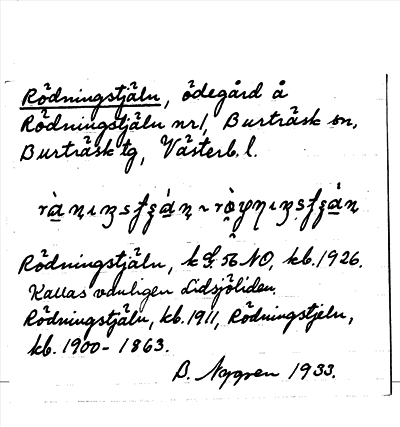 Rödningstjäln, ödegård å
Rödningstjäln nr 1, Burträsk sn,
Burträsk tg, Västerb. l.
Rödningstjäln, k 56 NO, kb. 1926.
Kallas vanligen Lidsjöliden
Rödningstjäln, kb. 1911, Rödningstjeln,
kb. 1900-1863.
B. Nygren 1933.